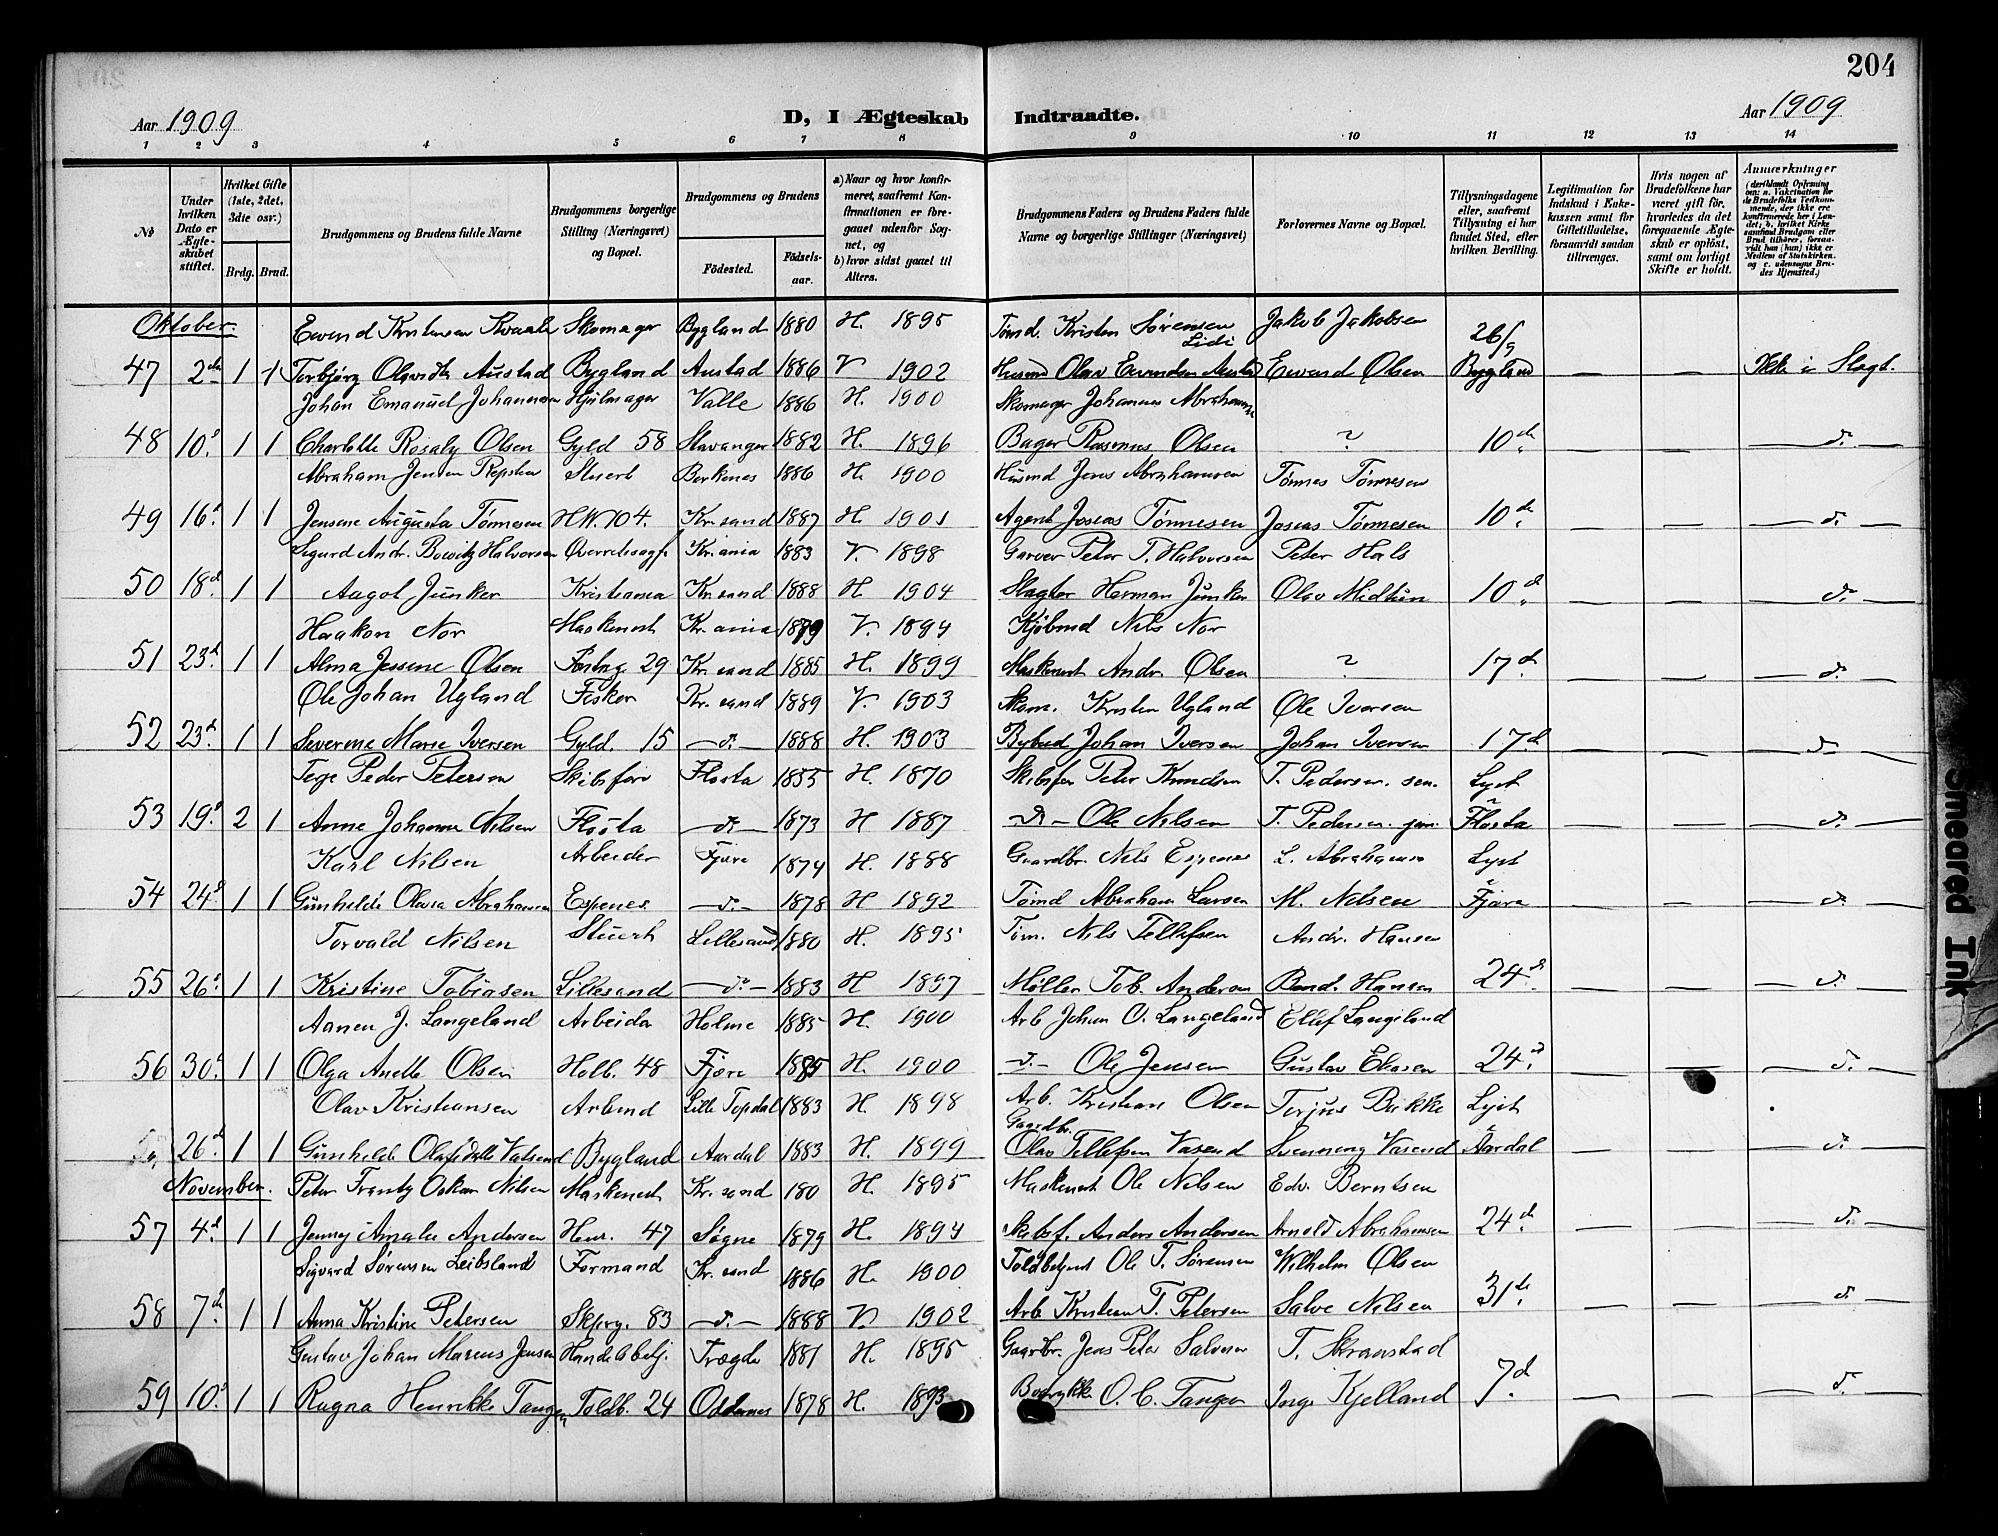 204
Aar 1909
D, I Ægteskab Indtraadte.
Aar 1909
1 2 3 4 5 6 7 8 9 10 11 12 13 14
No
Under hvilken Dato er Ægteskabet stiftet.
Hvilket Gifte (1ste, 2det, 3die osv.)
Brdg. Brud.
Brudgommens og Brudens fulde Navne
Brudgommens borgerlige Stilling (Næringsvei) og Bopæl.
Brudgommens og Brudens
Födested.
Födselsaar.
a) Naar og hvor konfirmeret, saafremt Konfirmationen er foregaaet udenfor Sognet, og b) hvor sidst gaaet til Alters.
Brudgommens Faders og Brudens Faders fulde Navne og borgerlige Stillinger (Næringsvei)
Forlovernes Navne og Bopæl.
Tillysningsdagene eller, saafremt Tillysning ei har fundet Sted, efter hvilken Bevilling.
Legitimation for Indskud i Enkekassen samt for Giftetilladelse, forsaavidt saadan tiltrænges.
Hvis nogen af Brudefolkene har været gift för, hvorledes da det foregaaende Ægteskab er oplöst, samt om lovligt Skifte er holdt.
Anmærkninger
Oktober. Skomager Bygland 1880 H. 1895 Tømd. Kristen Sørensen Lidi Jakob Jakobsen 26/9
47 2den 1 1 Torbjørg Olavsdtr Austad Bygland Austad 1886 V 1902 Husmd Olav Eivendsen Austad Eivend Olsen Bygland — — Ikke i Slægt.
Johan Emanuel Johannesen Hjulmager Valle 1886 H. 1900 Skomager Johannes
48 10. 1 1 Charlotte Rosaly Olsen Gyld 58 Stavanger 1882 H. 1896 Bager Rasmus Olsen ? 10de — — d.
Abraham Jensen Repsten Stuert Berkenes 1886 H. 1900 Husmd Jens Abrahamsen Tønnes Tønnesen
49 16. 1 1 Jensine Augusta Tønnesen H.W. 104. Kr.sand 1887 H. 1901 Agent Joseas Tønnesen Joseas Tønnesen 10de — — d.
Sigurd Andr. Bowitz Halvorsen Overretssagf. Kr.ania 1883 V. 1898 Garver Peter T. Halvorsen Peter Hals
50 18d 1 1 Aagot Junker Kristiania Kr.sand 1888 H 1904 Slagter Herman Junker Olav Midtun 10d — — d.
Haakon Nor Maskenist Kr.ania 1879 V. 1894 Kjøbmd Nils Nor
51 23d 1 1 Alma Jessine Olsen 29 Kr.sand 1885 H. 1899 Maskenist Andr. Olsen ? 17d — — d.
Ole Johan Ugland Fisker Kr.sand 1889 V. 1903 Skom. Kristen Ugland Ole Iversen
52 23d 1 1 Severine Marie Iversen Gyld. 15 — d. — 1888 H. 1903 Bybud Johan Iversen Johan Iversen 17d — — d.
Terje Peder Petersen Skibsfør Flosta 1855 H. 1870 Skibsfør Peter Knudsen T. Pedersen. sen. Lyst
53 19. 2 1 Anne Johanne Nilsen Flosta — d. — 1873 H 1887 — d. — Ole Nilsen T. Pedersen. jun. i Flosta — — d.
Karl Nilsen Arbeider Fjære 1874 H. 1888 Gaardbr. Nils Espenes L. Abrahamsen Lyst
54 24d 1 1 Gunhilde Olava Abrahamsen Espenes. — d. — 1878 H 1892 Tømd Abraham Larsen M. Nilsen i Fjære — — d.
Torvald Nilsen Stuert Lillesand 1880 H. 1895 Tøm. Nils Tellefsen Andr. Hansen
55 26. 1 1 Kristine Tobiasen Lillesand — d. — 1883 H 1897 Møller Tob. Andersen Hansen 24d — — d.
Aanen J. Langeland Arbeider Holme 1885 H. 1900 Arb Johan O. Langeland Elluf Langeland
56 30. 1 1 Olga Anette Olsen Holb. 48 Fjære 1885 H. 1900 — d. — Ole Jensen Gustav Eliasen 24d — — d.
Olav Kristiansen Arbmd Lille Topdal 1883 H. 1898 Arb. Kristian Olsen Terjus Bakke Lyst
26d 1 1 Gunhilde Bygland Aardal 1883 H. 1899 Gaardbr. Olav Tellefsen Vasend Svennung Vasend i Aardal — — d.
November. Peter Frantz Oskar Nilsen Maskenist Kr.sand 180 H. 1895 Maskenist Ole Nilsen Edv. Berntsen
57 4d 1 1 Jenny Amalie Andersen Henr. 47 Søgne 1879 H. 1894 Skibsf. Anders Andersen Arnold Abrahamsen 24d — — d.
Sigvard Sørensen Leibsland Formand Kr.sand 1886 H. 1900 Toldbetjent Ole T. Sørensen Wilhelm Olsen
58 7de 1 1 Anna Kristine Petersen 83 — d. — 1888 V 1902 Arb. Kristian T. Petersen Salve Nilsen 31te — — d.
Gustav Johan Marcus Jensen Handelsbetj. Trægde 1881 H. 1895 Gaardbr. Jens Peter Salvesen T. Skranstad
59 10. 1 1 Ragna Henrikke Tangen Toldb. 24 Oddernes 1878 H. 1893 O. C. Tangen Inge Kjelland 7d — — d.
Smeared Ink